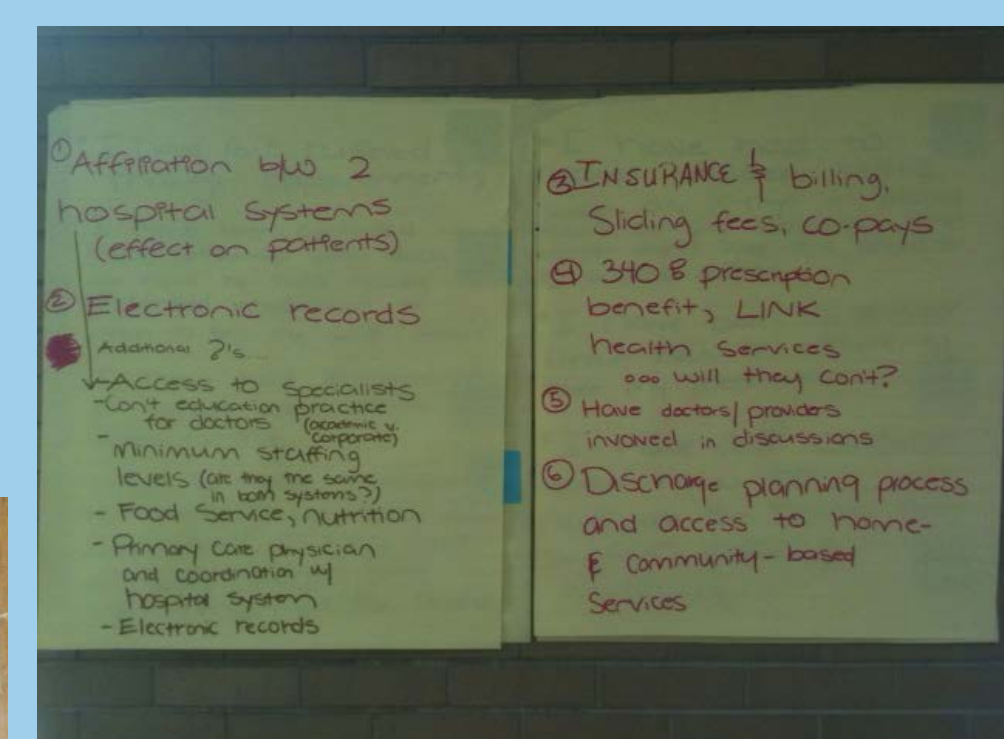 ① Affiliation b/w 2
hospital systems
(effect on patients)
② Electronic records
Additional ?'s...
- Access to specialists
- Con't education practice
for doctors (academic v.
corporate)
- Minimum staffing
levels (are they the same
in both systems?)
- Food Service, nutrition
- Primary care physician
and coordination w/
hospital system
- Electronic records
③ INSURANCE & billing,
Sliding fees, co-pays
④ 340 B prescription
benefit, LINK
health services
... will they con't?
⑤ Have doctors/providers
involved in discussions
⑥ Discharge planning process
and access to home-
& community-based
Services